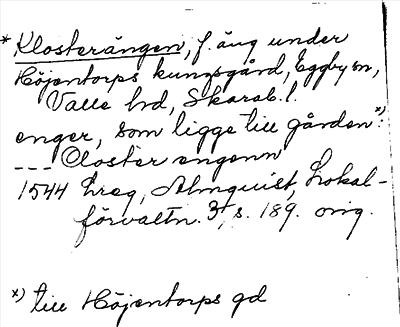 * Klosterängen, f. äng under
Höjentorps kungsgård, Eggby sn,
Valle hd, Skarab. l.
enger, som ligge till gården x)
--- Closter engenn
1544 Lreg, Almquist, Lokal-
förvaltn. 3, s. 189. orig.
x) till Höjentorps gd